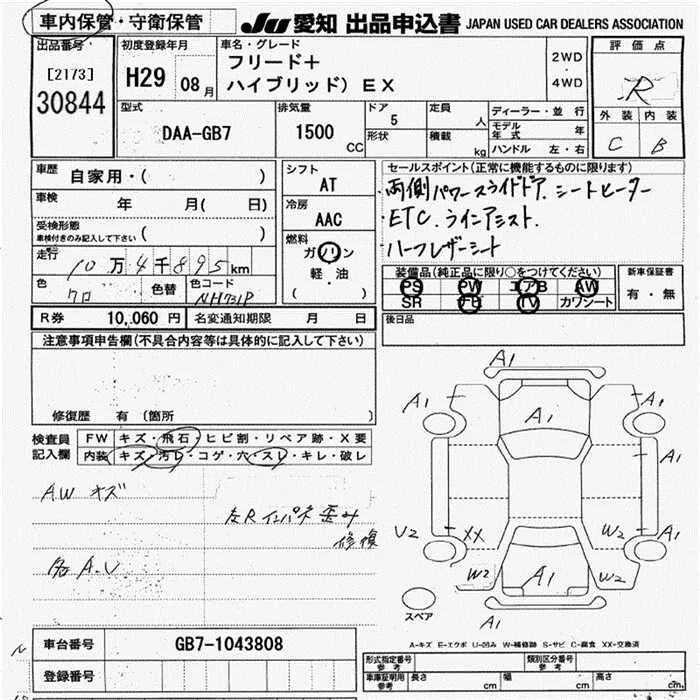 車内保管・守衛保管
JU 愛知 出品申込書 JAPAN USED CAR DEALERS ASSOCIATION
出品番号
[2173]
30844
初度登録年月
H29 08月
車名・グレード
フリード+
ハイブリッド) EX
2WD
・
4WD
評価点
R
外装 内装
C B
型式
DAA-GB7
排気量
1500 CC
ドア
5
形状
定員 人
積載 kg
ディーラー・並行
モデル年式 年
ハンドル 左・右
車歴
自家用・( )
車検 年 月( 日)
受検形態
車検付きのみ記入して下さい ( )
走行 10万4千895km
色 クロ 色替 色コード NH731P
シフト
AT
冷房
AAC
燃料
ガソリン
軽・油
( )
セールスポイント(正常に機能するものに限ります)
両側パワースライドドア. シートヒーター
ETC. ラインアシスト.
ハーフレザーシート
装備品(純正品に限り○をつけてください)
PS PW エアB AW
SR TV カワシート
新車保証書
有・無
後日品
R券 10,060 円 名変通知期限 月 日
注意事項申告欄(不具合内容等は具体的に記入して下さい)
修復歴 有(箇所 )
検査員記入欄
FW キズ・飛石・ヒビ割・リペア跡・X要
内装 キズ・汚レ・コゲ・穴・スレ・キレ・破レ
AW キズ
左Rインパネ歪み
修複
各A.U
A1
A1 A1 A1
A1
U2 XX W2 A1
W2 A1 W2
スペア A1
A-キズ E-エクボ U-凹み W-補修跡 S-サビ C-腐食 XX-交換済
車台番号 GB7-1043808
登録番号
形式指定番号 参考 類別区分番号 参考
車庫証明用 参考 長さ cm 幅 cm 高さ cm